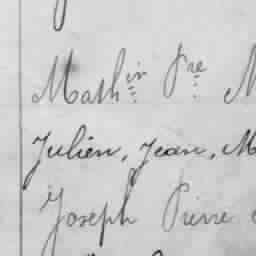 Mathin Pre
Julien, Jean, M
Joseph Pierre